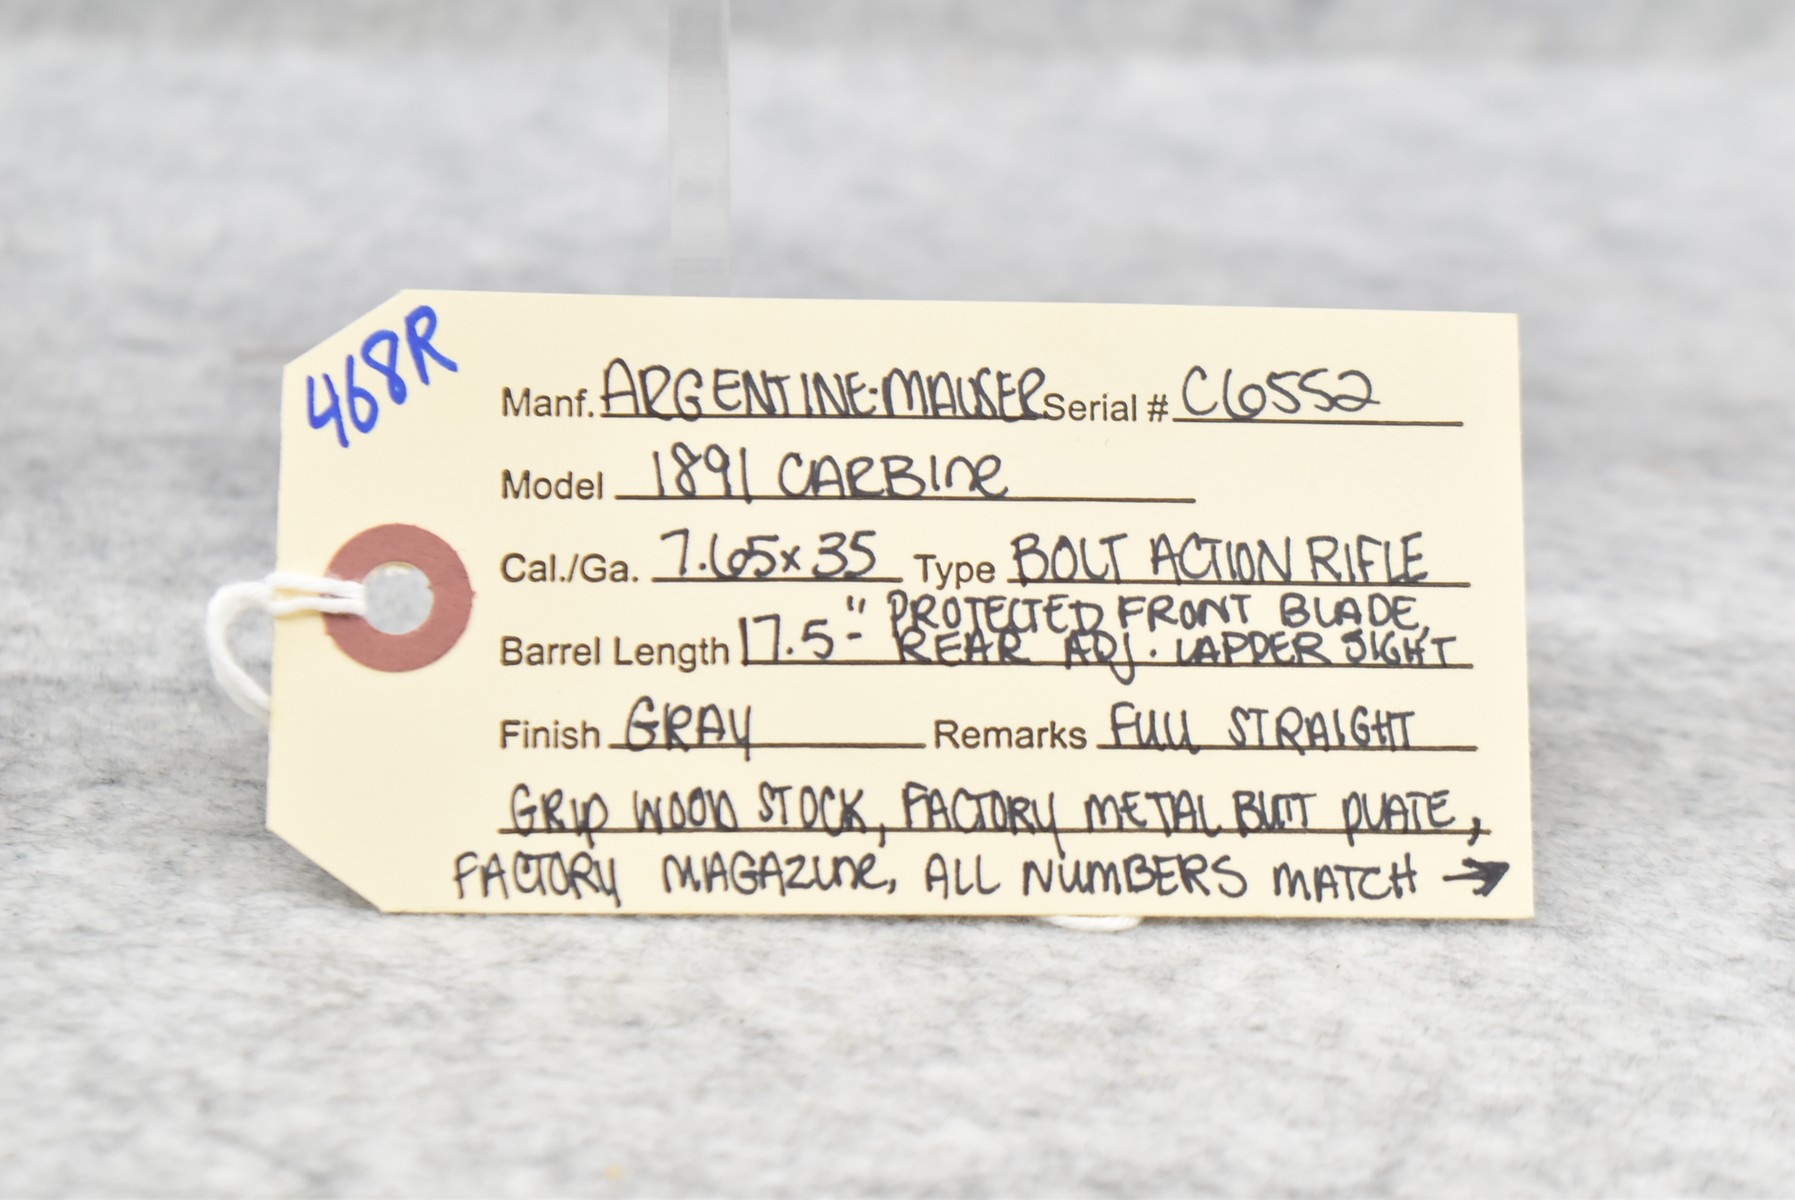 468R
Manf. ARGENTINE-MAUSER Serial # C6552
Model 1891 CARBINE
Cal./Ga. 7.65x35 Type BOLT ACTION RIFLE
Barrel Length 17.5"- PROTECTED FRONT BLADE,
REAR ADJ. LAPDER SIGHT
Finish GRAY Remarks FULL STRAIGHT
GRIP WOOD STOCK, FACTORY METAL BUTT PLATE,
FACTORY MAGAZINE, ALL NUMBERS MATCH →